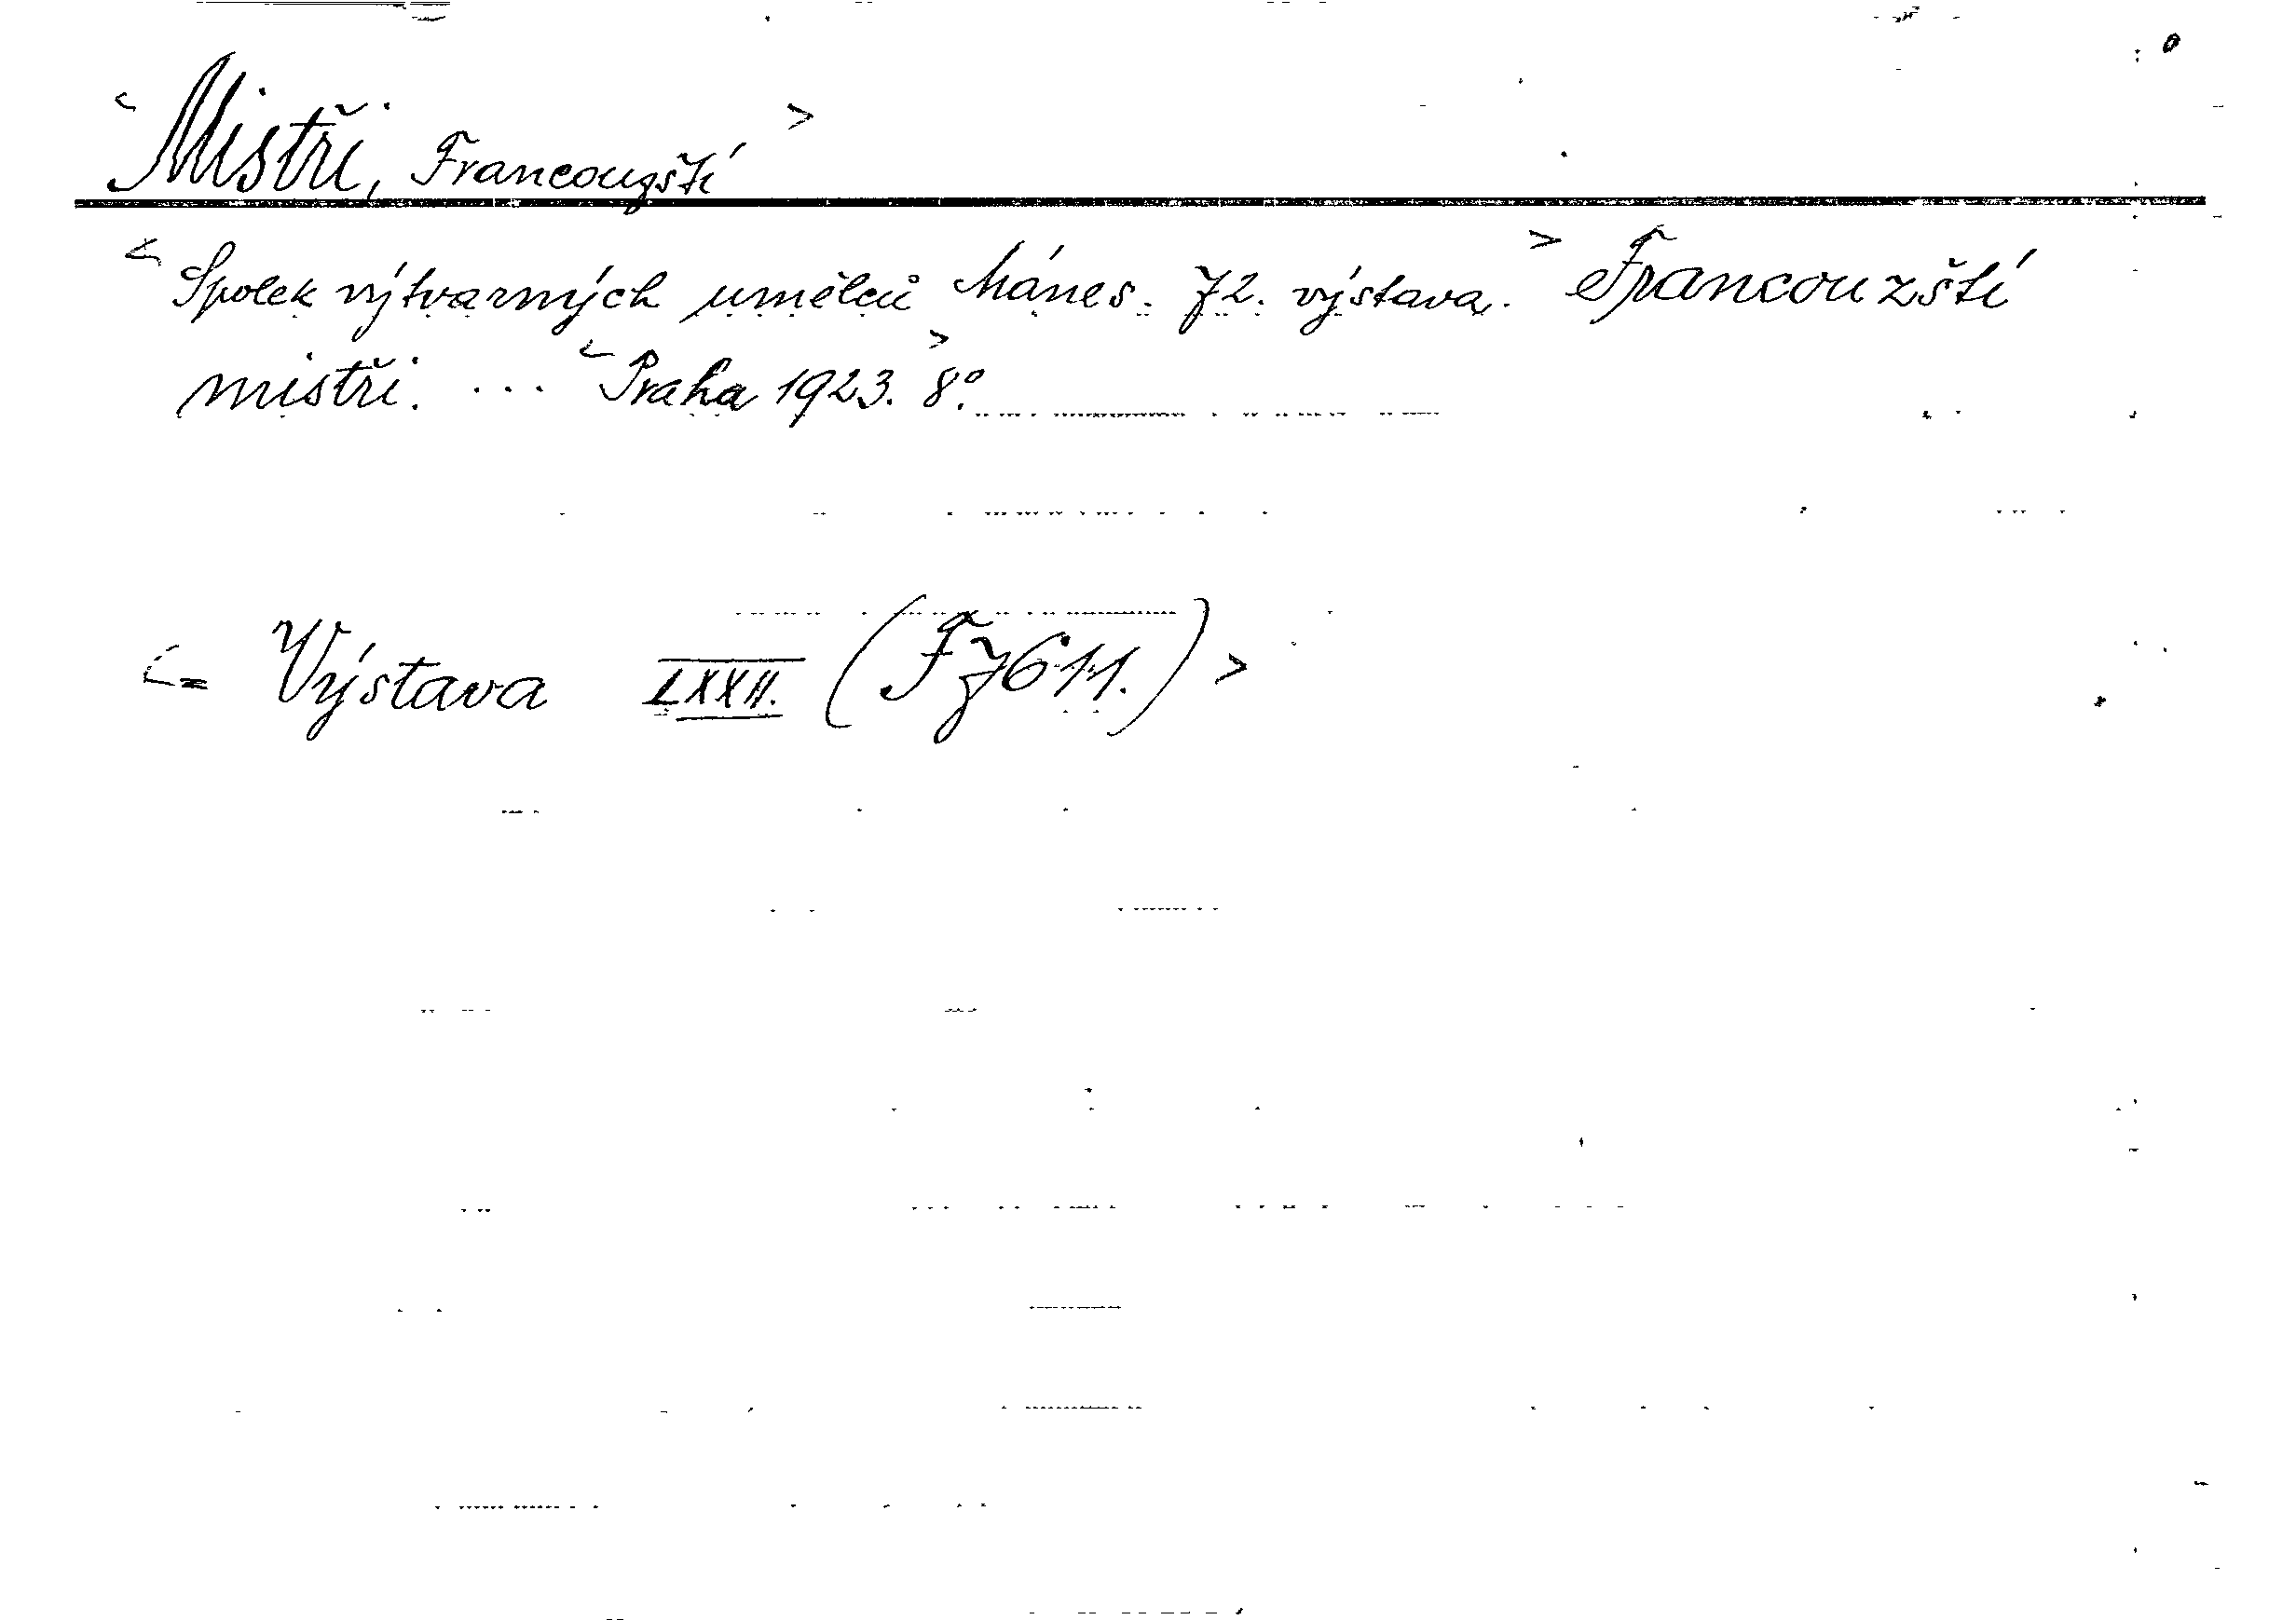 < Mistři, Francouzští >
< Spolek výtvarných umělců Mánes. 72. výstava. > Francouzští
mistři. ... < Praha 1923. > 8°.
<= Výstava LXXII. (F 7611.) >